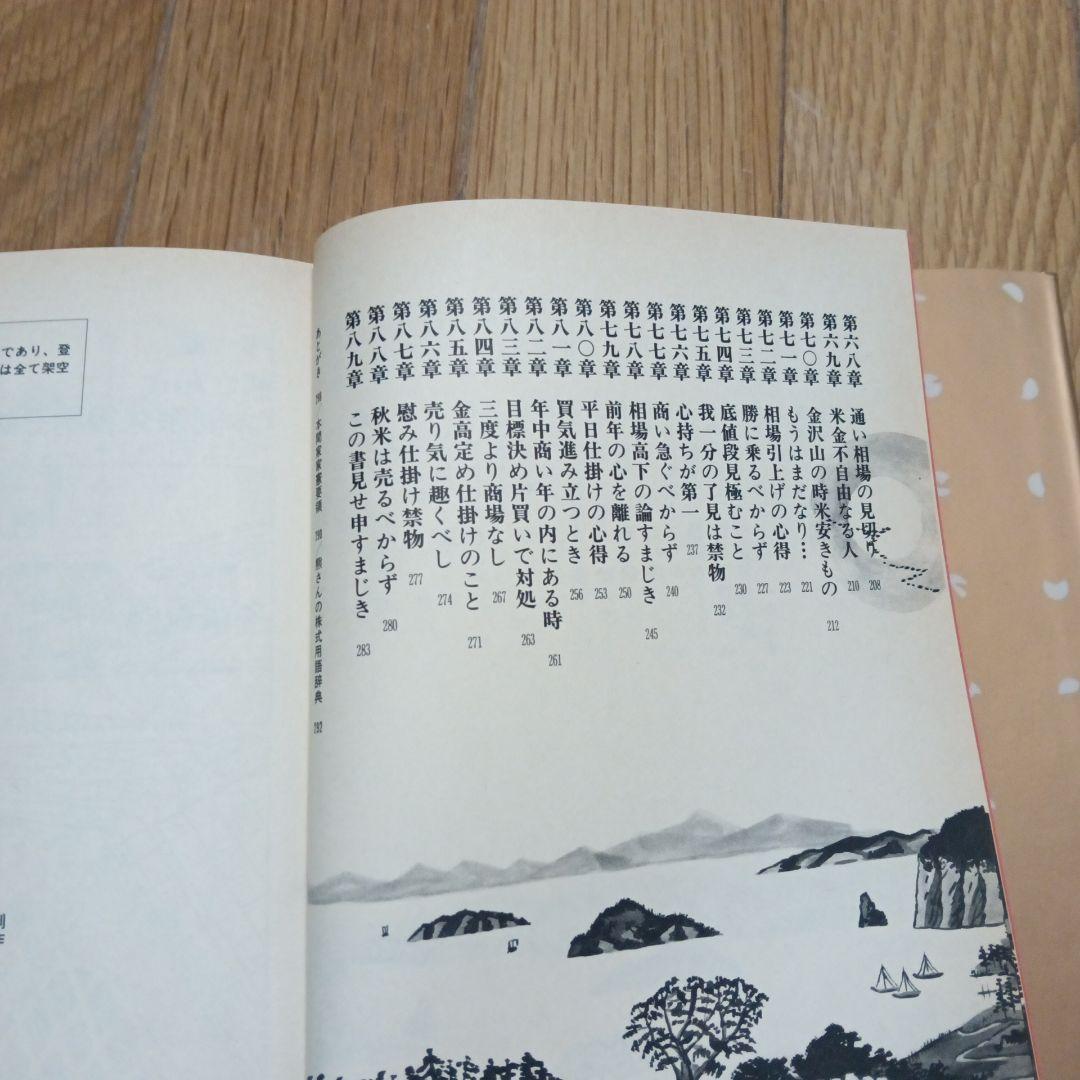 第六八章 通い相場の見切り 208
第六九章 米金不自由なる人 210
第七〇章 金沢山の時米安きもの 212
第七一章 もうはまだなり… 221
第七二章 相場引上げの心得 223
第七三章 勝に乗るべからず 227
第七四章 底値段見極むこと 230
第七五章 我一分の了見は禁物 232
第七六章 心持ちが第一 237
第七七章 商い急ぐべからず 240
第七八章 相場高下の論すまじき 245
第七九章 前年の心を離れる 250
第八〇章 平日仕掛けの心得 253
第八一章 買気進み立つとき 256
第八二章 年中商い年の内にある時 261
第八三章 目標決め片買いで対処 263
第八四章 三度より商場なし 267
第八五章 金高定め仕掛けのこと 271
第八六章 売り気に趣くべし 274
第八七章 慰み仕掛け禁物 277
第八八章 秋米は売るべからず 280
第八九章 この書見せ申すまじき 283
あとがき / 本間家家憲要領 290 / 熊さんの株式用語辞典 292
であり、登
は全て架空